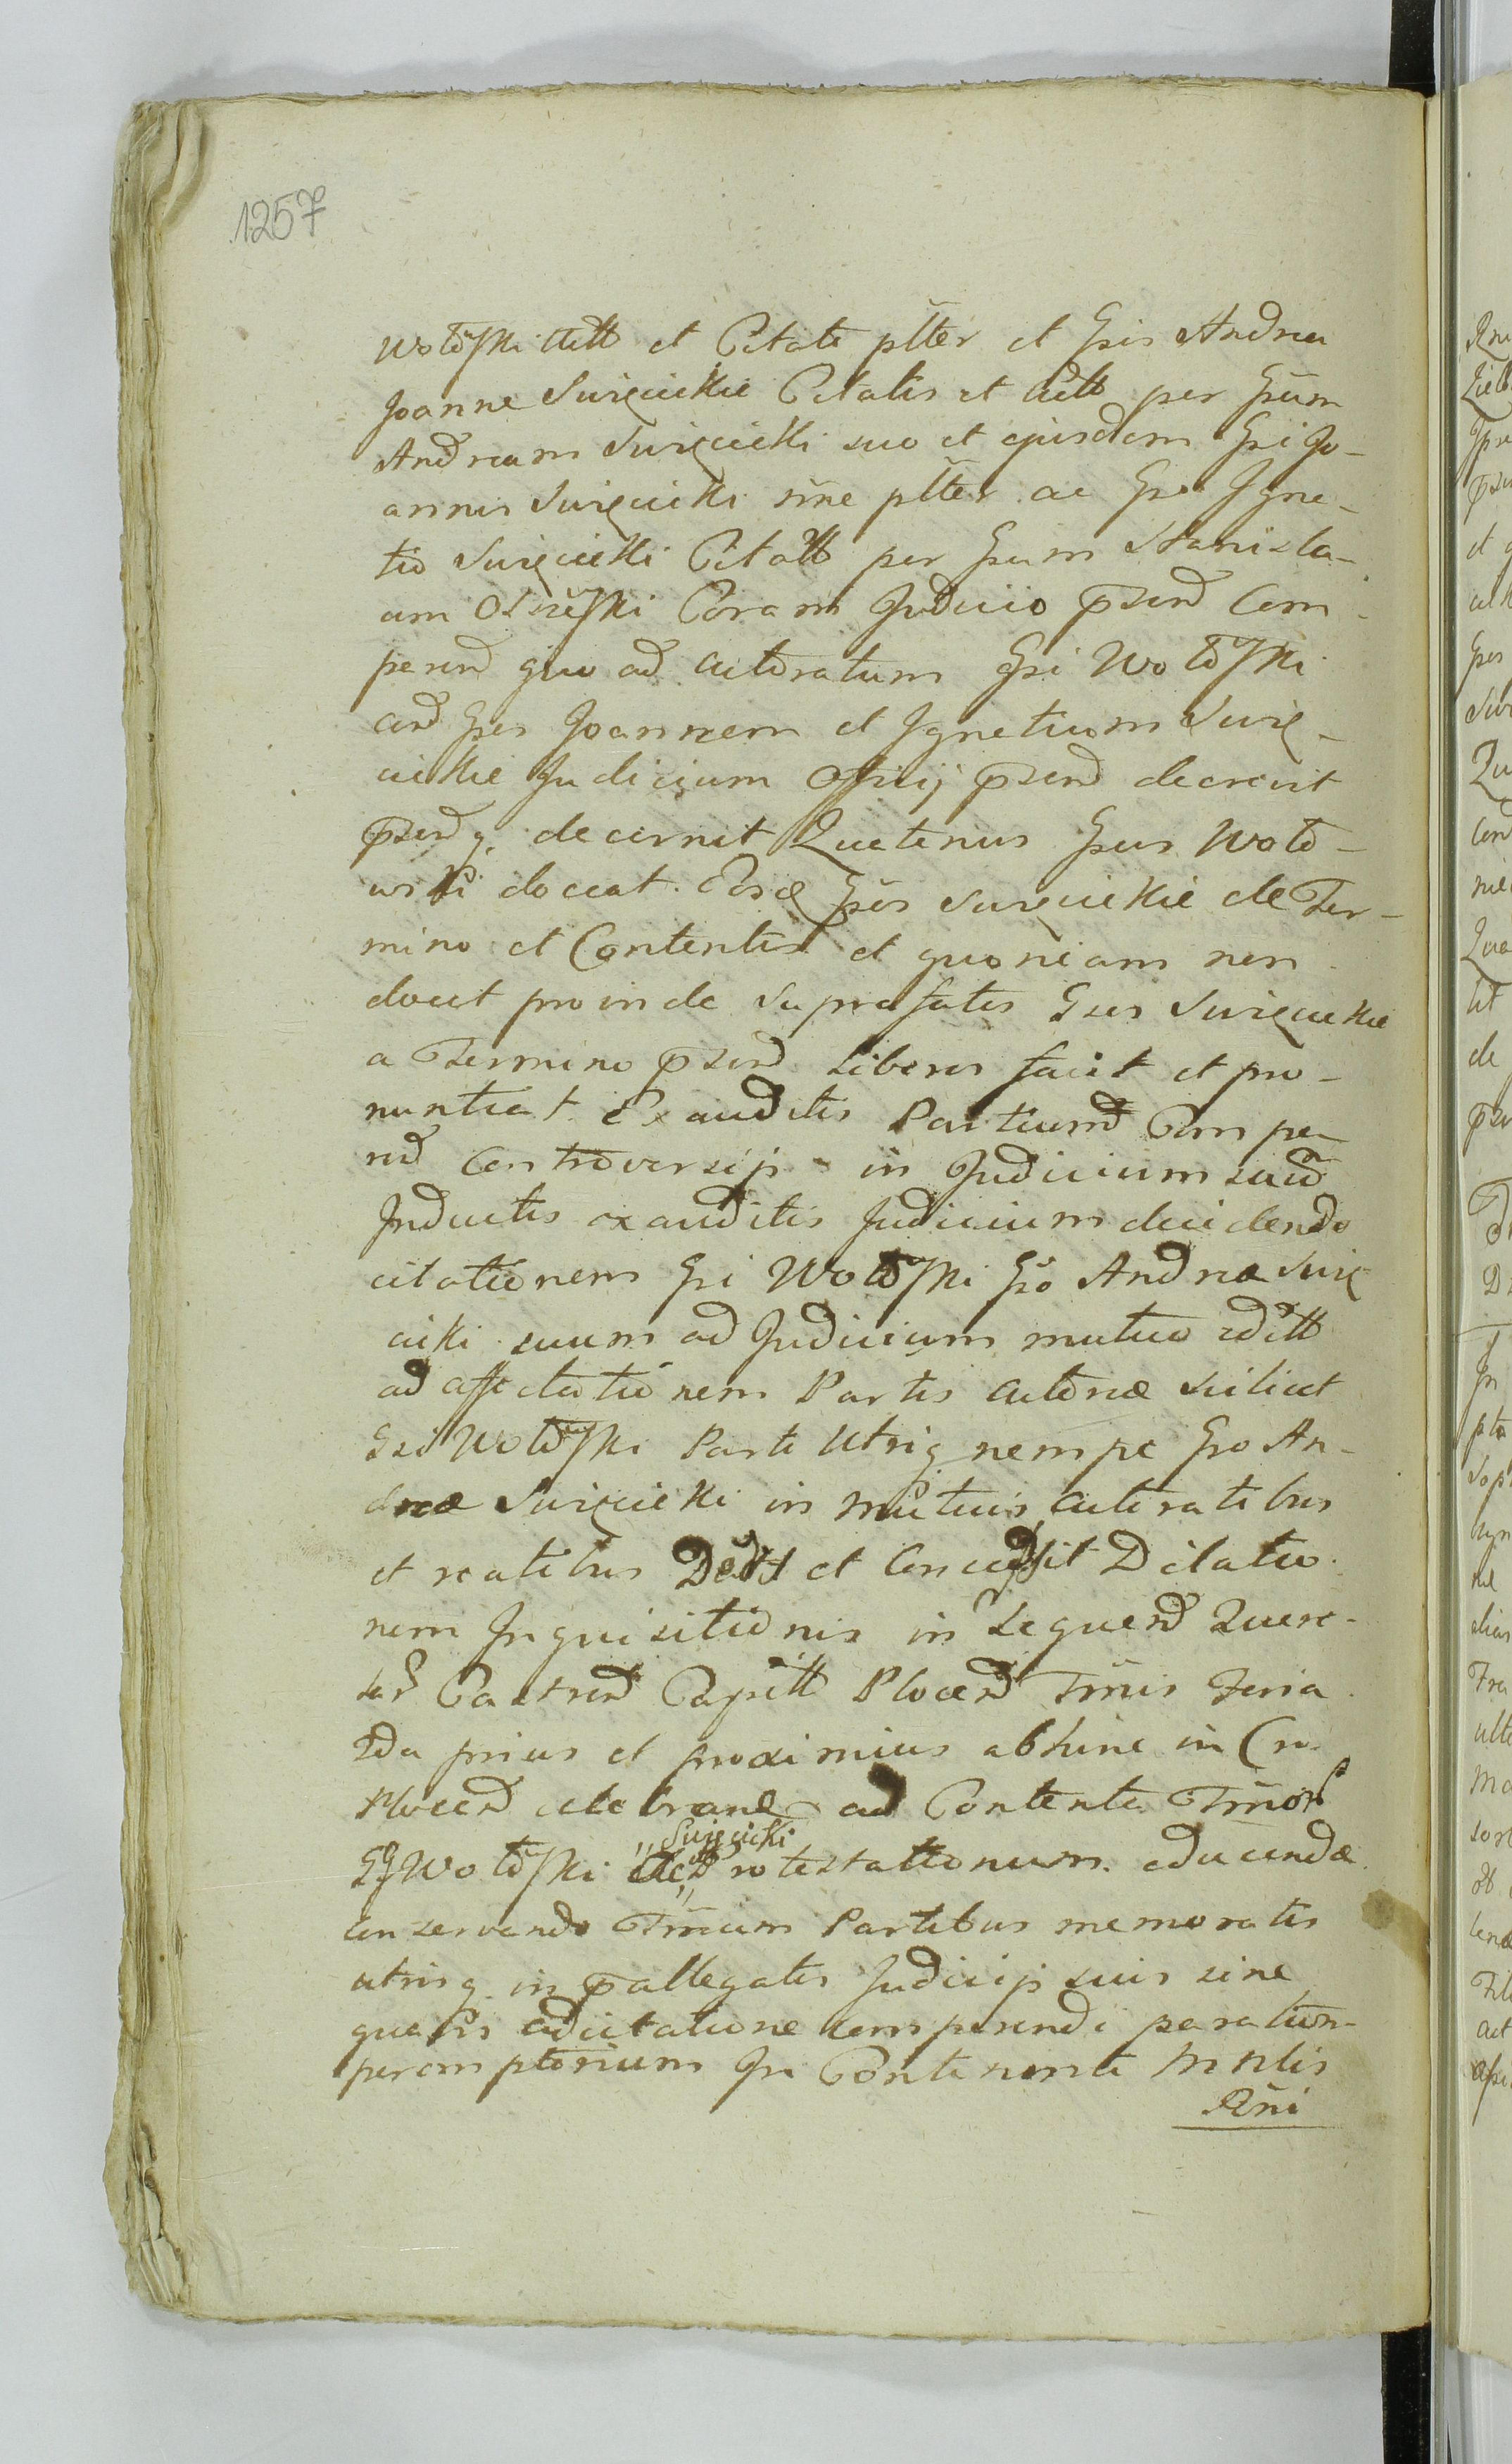 1257
Wotowski Actt et Citato ptter et Gsis Andrea
Joanne Swięcickie Citatis et Actt per Gsum
Andream Swięcicki suo et ejusdem Gsi Jo-
annis Swięcicki nne ptter ac Gso Igna-
tio Swięcicki Citatt per Gsum Stanisla-
um Olszewski Coram Judicio pzend Com-
parend quo ad Actoratum Gsi Wotowski
Gsos Joannem et Ignatium Swię-
cickie Judicium Officij pzend decrevit
pzendq. decernit Quatenus Gsus Woto-
wski doceat Gsos Swięcickie de Ter-
mino et Contentis et quoniam non
docet proinde Suprafatos Gsos Swięcickie
a Termino pzend liberos facit et pro-
nuntiat Exauditis Partium Compa-
rend Controversijs in Judicium suum
Inductis exauditis Judicium decidendo
citationem Gsi Wotowski Gso Andreæ Swię-
cicki suum ad Judicium mutuo editt
ad affectationem Partis Actoreæ scilicet
Gsi Wotowski Parti Utriq nempe Gso An-
dreæ Swięcicki in mutuis Actoratibus
et reatibus Dedit et Concessit Dilatio-
nem Inquisitionis in Sequend Quere-
lar Castren Capitt Plocen Tmis Feria
2da prius et proximius abhinc in Cro
Plocen celebrand ad Contenta Tmor
GG Wotowski Ac „Swięcicki„ Protestationum educendæ
Conservando Tmum Partibus memoratis
utrisq. in pallegatis Judicijs suis sine
quavis adcitatione comparendi peratum
peremptorium In Continenti Mnlis
Rni